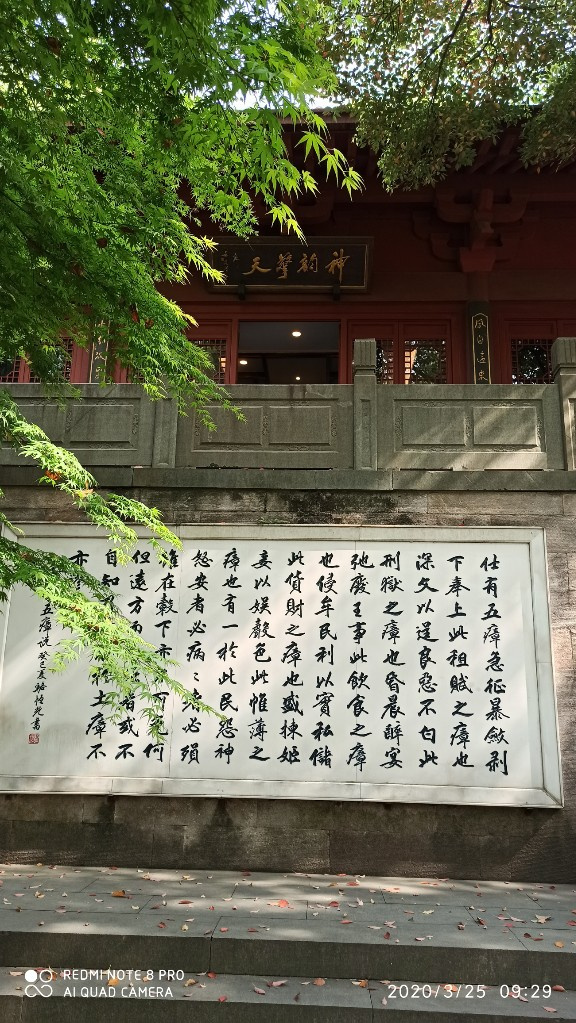 神韵擎天
風自遠來
仕有五瘴急征暴斂剥
下奉上此租賦之瘴也
深文以逞良惡不白此
刑獄之瘴也昏晨醉宴
弛廢王事此飲食之瘴
也侵牟民利以實私儲
此貨財之瘴也盛揀姬
妾以娱聲色此帷薄之
瘴也有一於此民怨神
怒安者必病〻者必殞
雖在轂下亦可免何
但遠方而者或不
自知土瘴不
亦
五瘴说 癸巳夏 骆恒光書
REDMI NOTE 8 PRO
AI QUAD CAMERA
2020/3/25 09:29